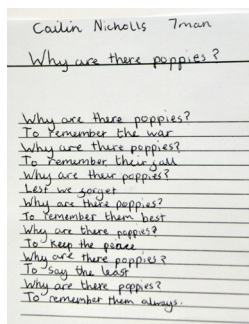 Cailin Nicholls 7man
Why are there poppies?
Why are there poppies?
To remember the war
Why are there poppies?
To remember their fall
Why are their poppies?
Lest we forget
Why are there poppies?
To remember them best
Why are there poppies?
To keep the peace
Why are there poppies?
To say the least
Why are there poppies?
To remember them always.